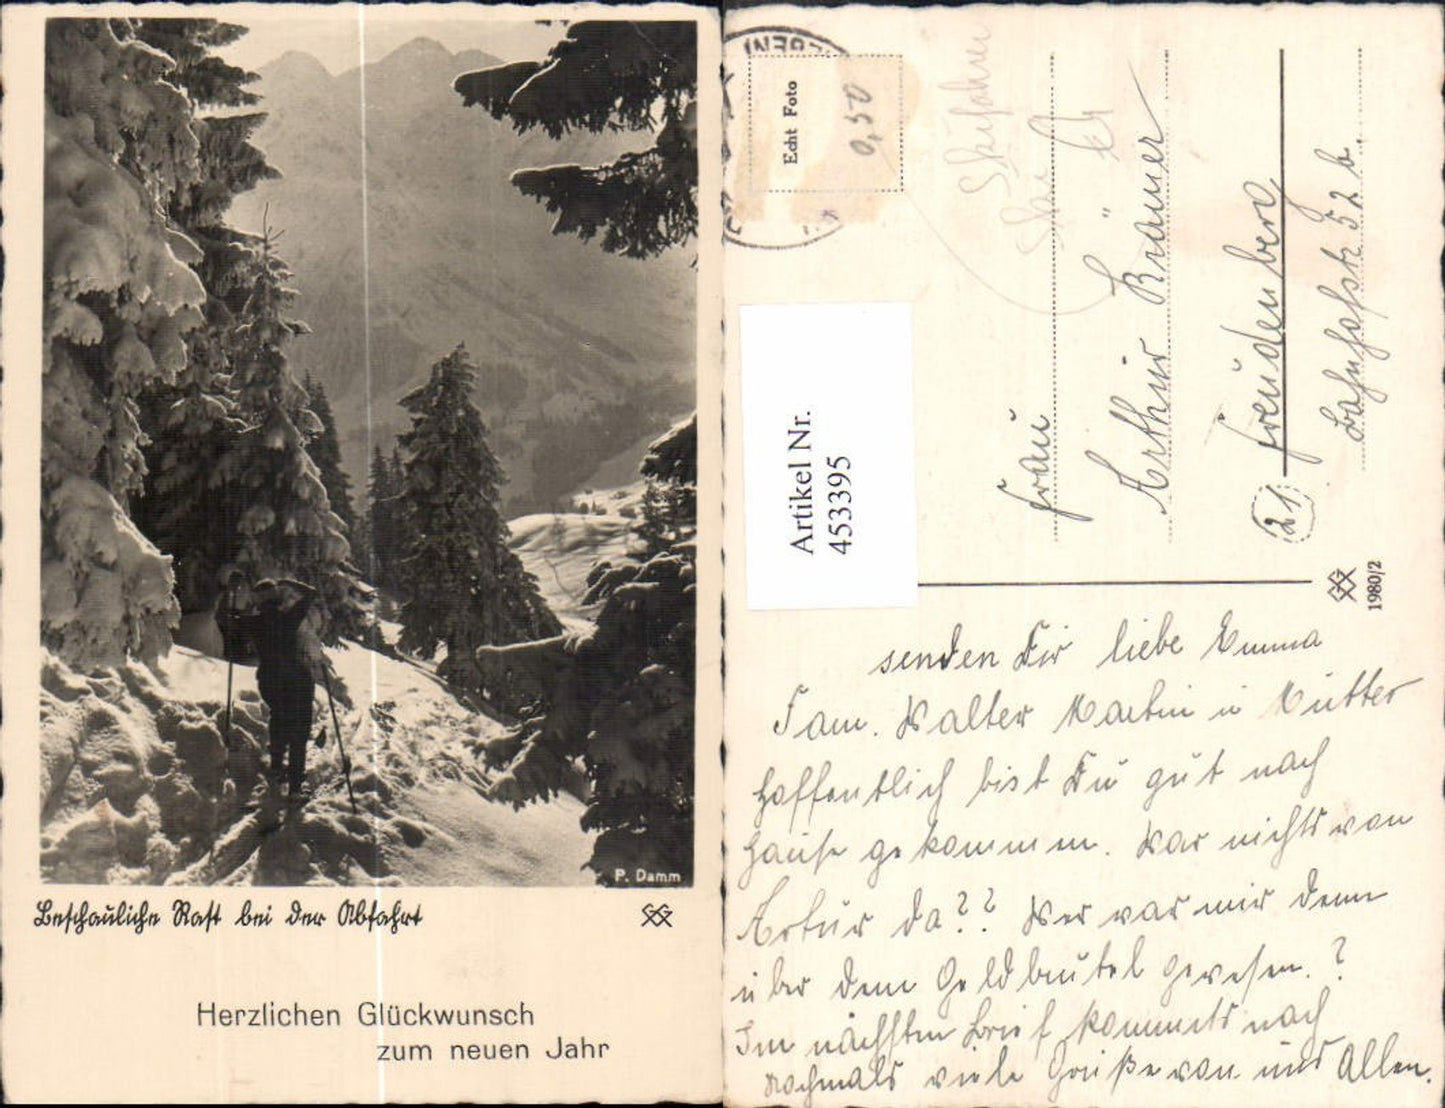 P. Damm
Beschauliche Rast bei der Abfahrt
Herzlichen Glückwunsch
zum neuen Jahr
Echt Foto
0,50
Skifahrer
Artikel Nr.
453395
Frau
Arthur Krämer
Freudenberg
Bahnhofstr 52 b.
(21)
1980/2
senden Dir liebe Emma
Fam. Walter Martin u Mutter
Hoffentlich bist Du gut nach
Hause gekommen. War nichts von
Artur da?? Wer war mir denn
über dem Geldbeutel gewesen.?
Im nächsten Brief kommts noch
Nochmals viele Grüße von uns Allen.